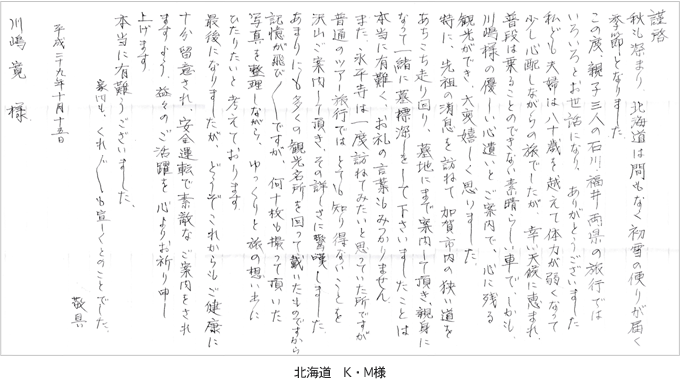 謹啓
秋も深まり 北海道は間もなく初雪の便りが届く
季節となりました
この度、親子三人の石川、福井両県の旅行では
いろいろとお世話になり、ありがとうございました
私ども夫婦は八十歳を越えて体力が弱くなって
少し心配しながらの旅でしたが、幸い天候に恵まれ、
普段は乗ることのできない素晴らしい車で、しかも、
川嶋様の優しい心遣いとご案内で、心に残る
観光ができ、大変嬉しく思いました。
特に、先祖の消息を訪ねて加賀市内の狭い道を
あちこち走り回り、墓地にまで案内して頂き、親身に
なって一緒に墓標探しをして下さいましたことは
本当に有難く、お礼の言葉もみつかりません
また、永平寺は一度訪ねてみたいと思っていた所ですが
普通のツアー旅行ではとても知り得ないことを
沢山ご案内して頂き、その詳しさに驚嘆しました。
あまりにも多くの観光名所を回って戴いたものですから
記憶が飛び〱ですが、何十枚も撮って頂いた
写真を整理しながら、ゆっくりと旅の想い出に
ひたりたいと考えております
最後になりましたが、どうぞこれからもご健康に
十分留意され、安全運転で素敵なご案内をされ
ますよう、益々のご活躍を心よりお祈り申し
上げます
本当に有難うございました。
家内も、くれ〲も宜しくとのことでした。
敬具
平成二十九年十月十五日
川嶋 寛 様
北海道 K・M様